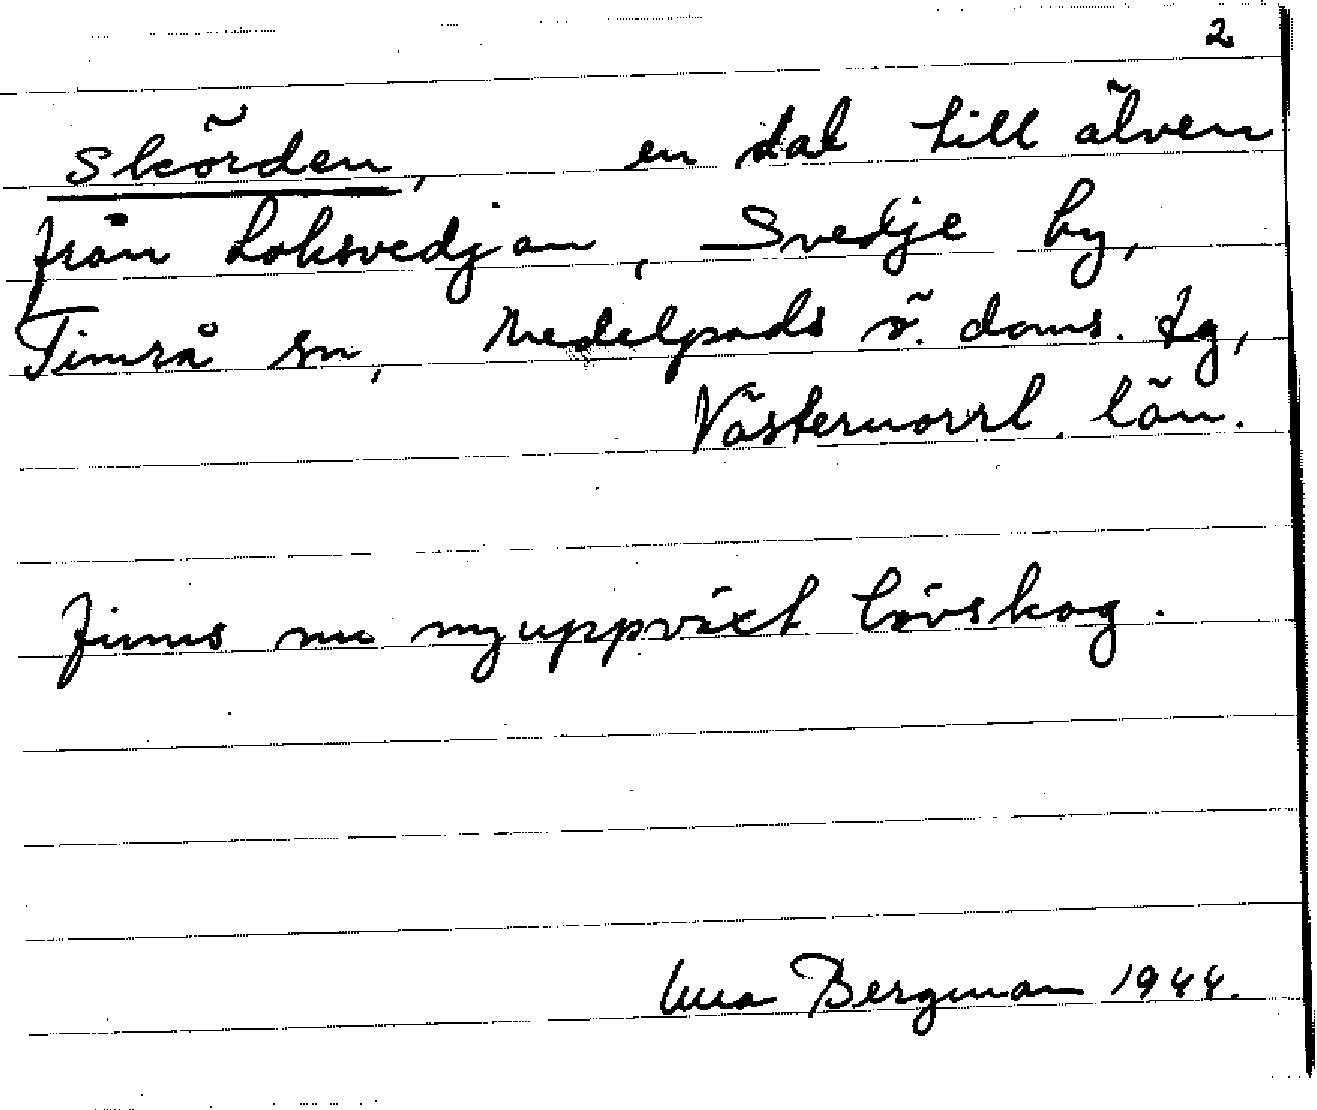 2
Skörden, en dal till älven
från Loksvedjan, Svedje by,
Timrå sn, Medelpads ö. doms. tg,
Västernorrl. län.
Finns nu ny uppväxt lövskog.
Bergman 1944.